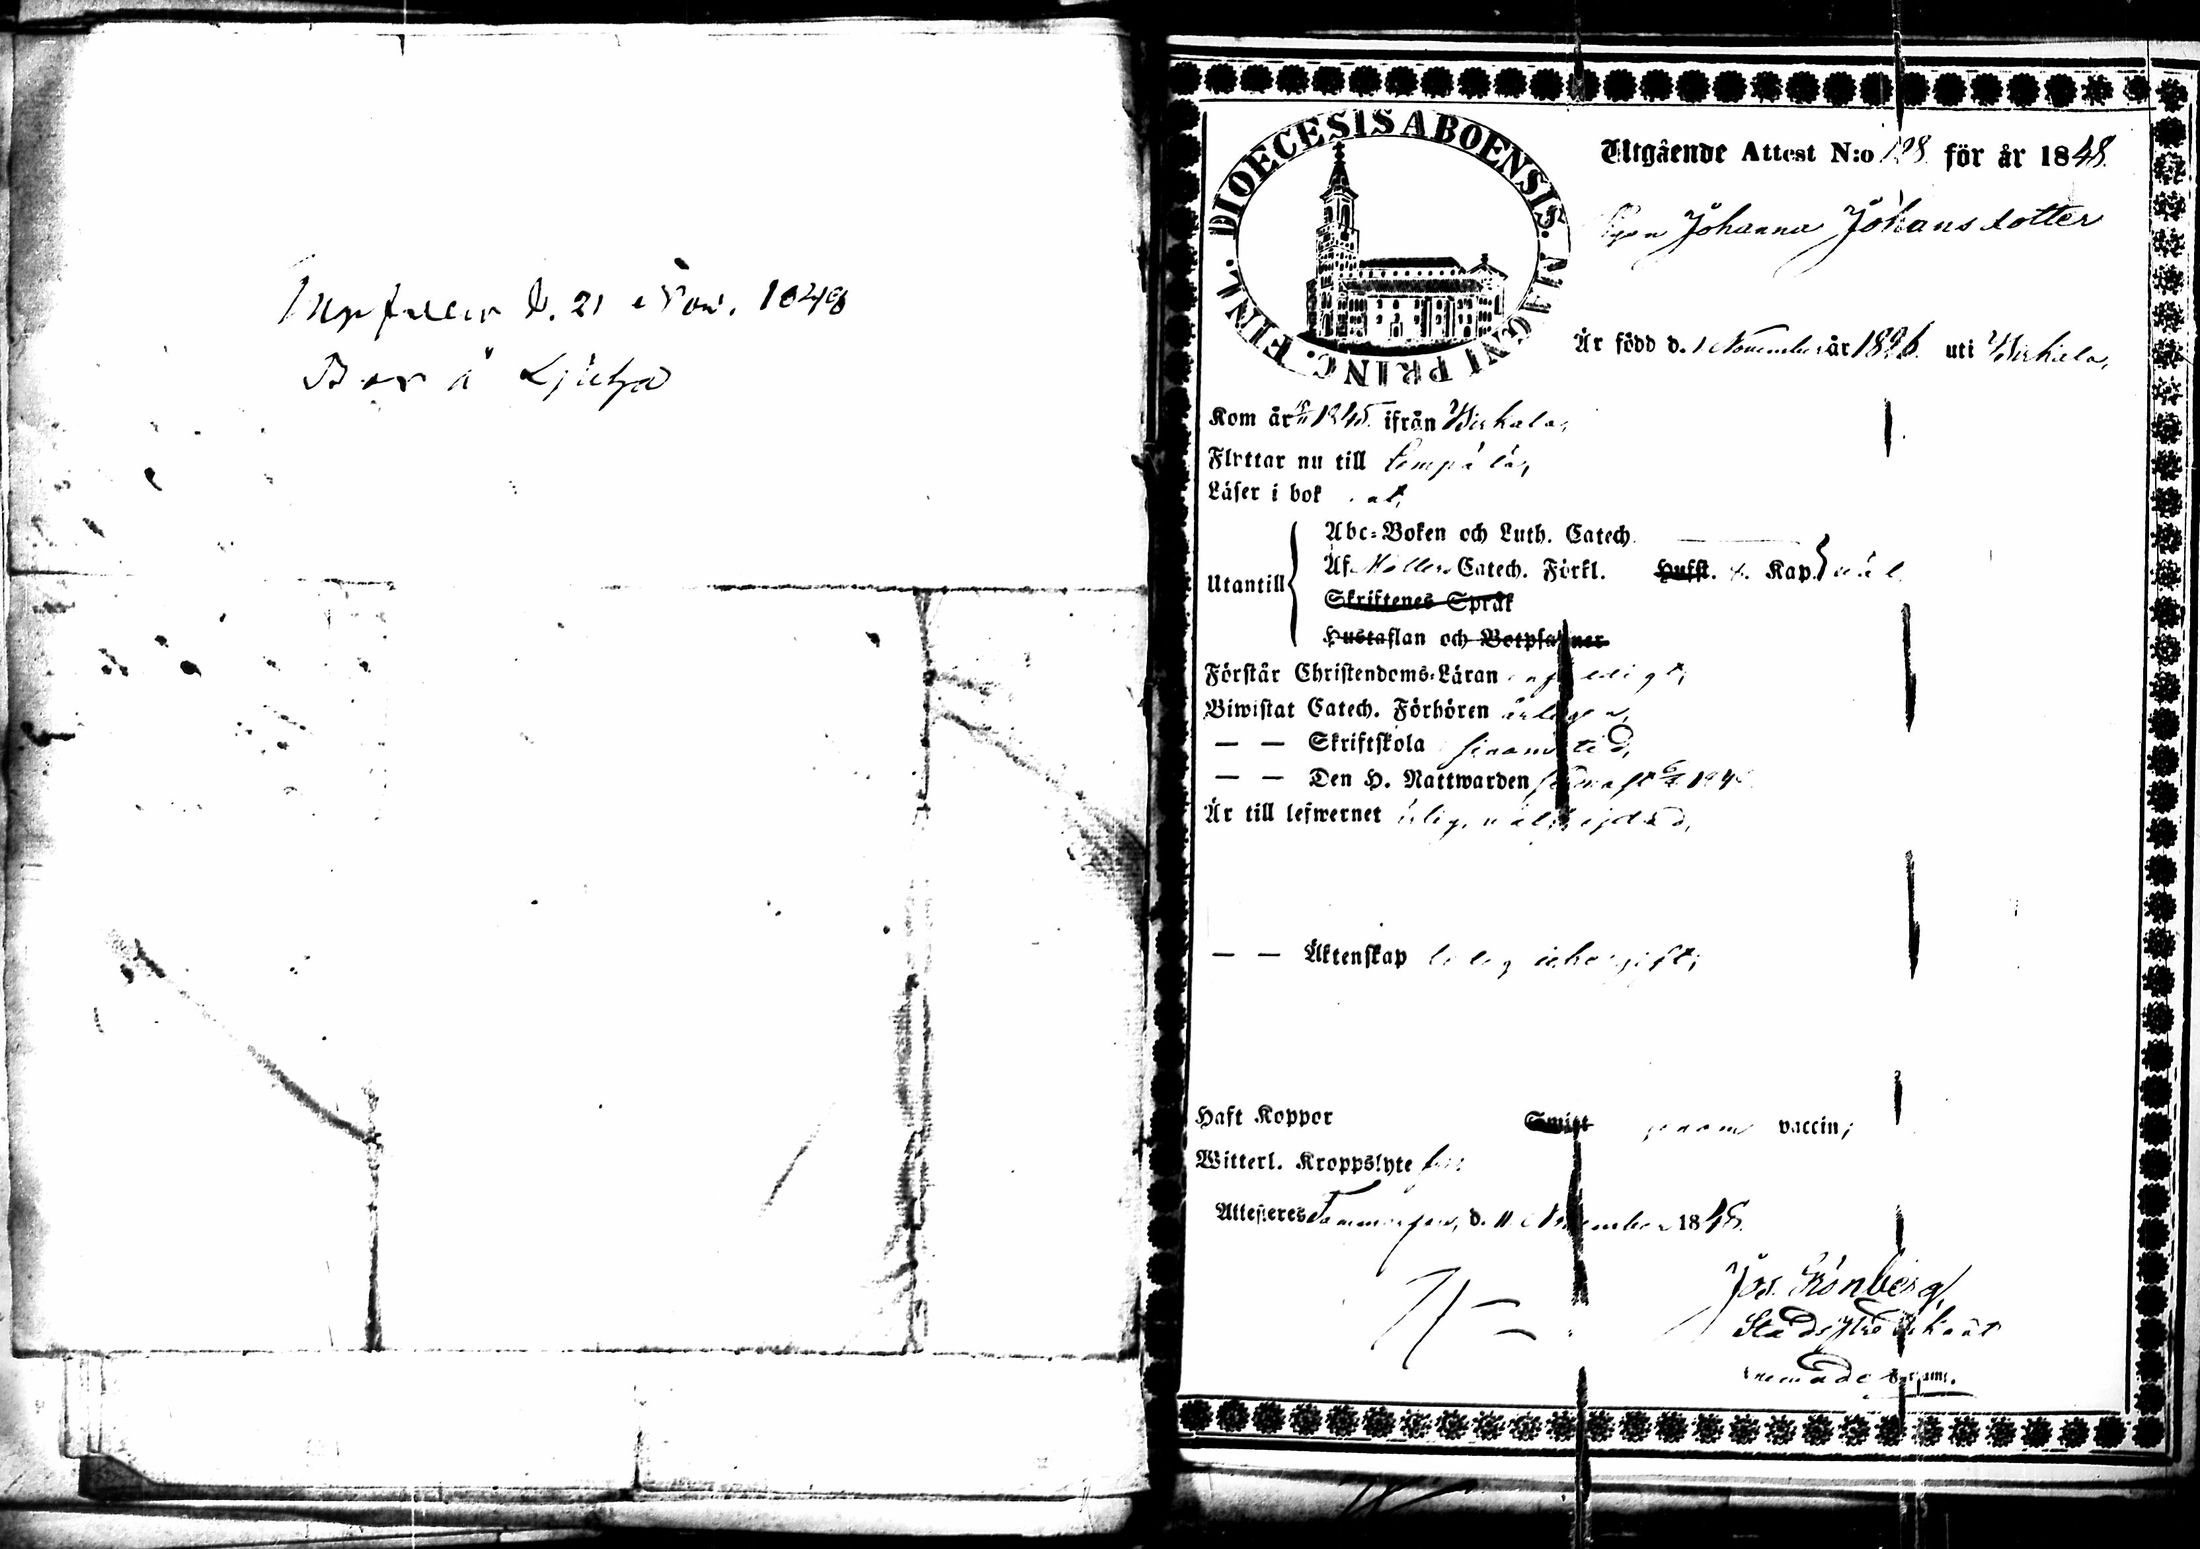 d. 21 Nov. 1848
Bor å
DIOECESIS ABOENSIS. MAGNI PRINC. FINL.
Utgående Attest N:o 128 för år 1848.
Pigan Johanna Johansdotter
Är född d. 1 November år 1826 uti Birkala,
Kom år 1845 ifrån Birkala,
Flyttar nu till Lempälä,
Läser i bok
Abc-Boken och Luth. Catech.
Utantill
Af Möllers Catech. Förkl. Hufst. Kap. väl
Skriftenes Språk
Hustaflan och Botpsalmer
Förstår Christendoms-Läran
Biwistat Catech. Förhören årligen,
— — Skriftskola
— — Den H. Nattwarden
Är till lefwernet ärlig, välfrejdad,
— — Äktenskap ledig
Haft Koppor Smitt genom vaccin;
Witterl. Kroppslyte
Attesteras Tammerfors, d. 11 November 1848.
Jos. Grönberg,